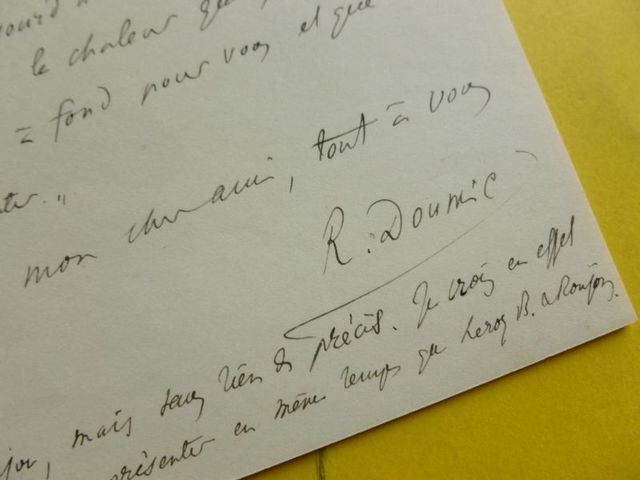 la chaleur que
à fond pour vous et que
mon cher ami, tout à vous
R. Doumic
mais sans rien de précis. Je crois en effet
présenter en même temps que Leroy B. à Roujon.